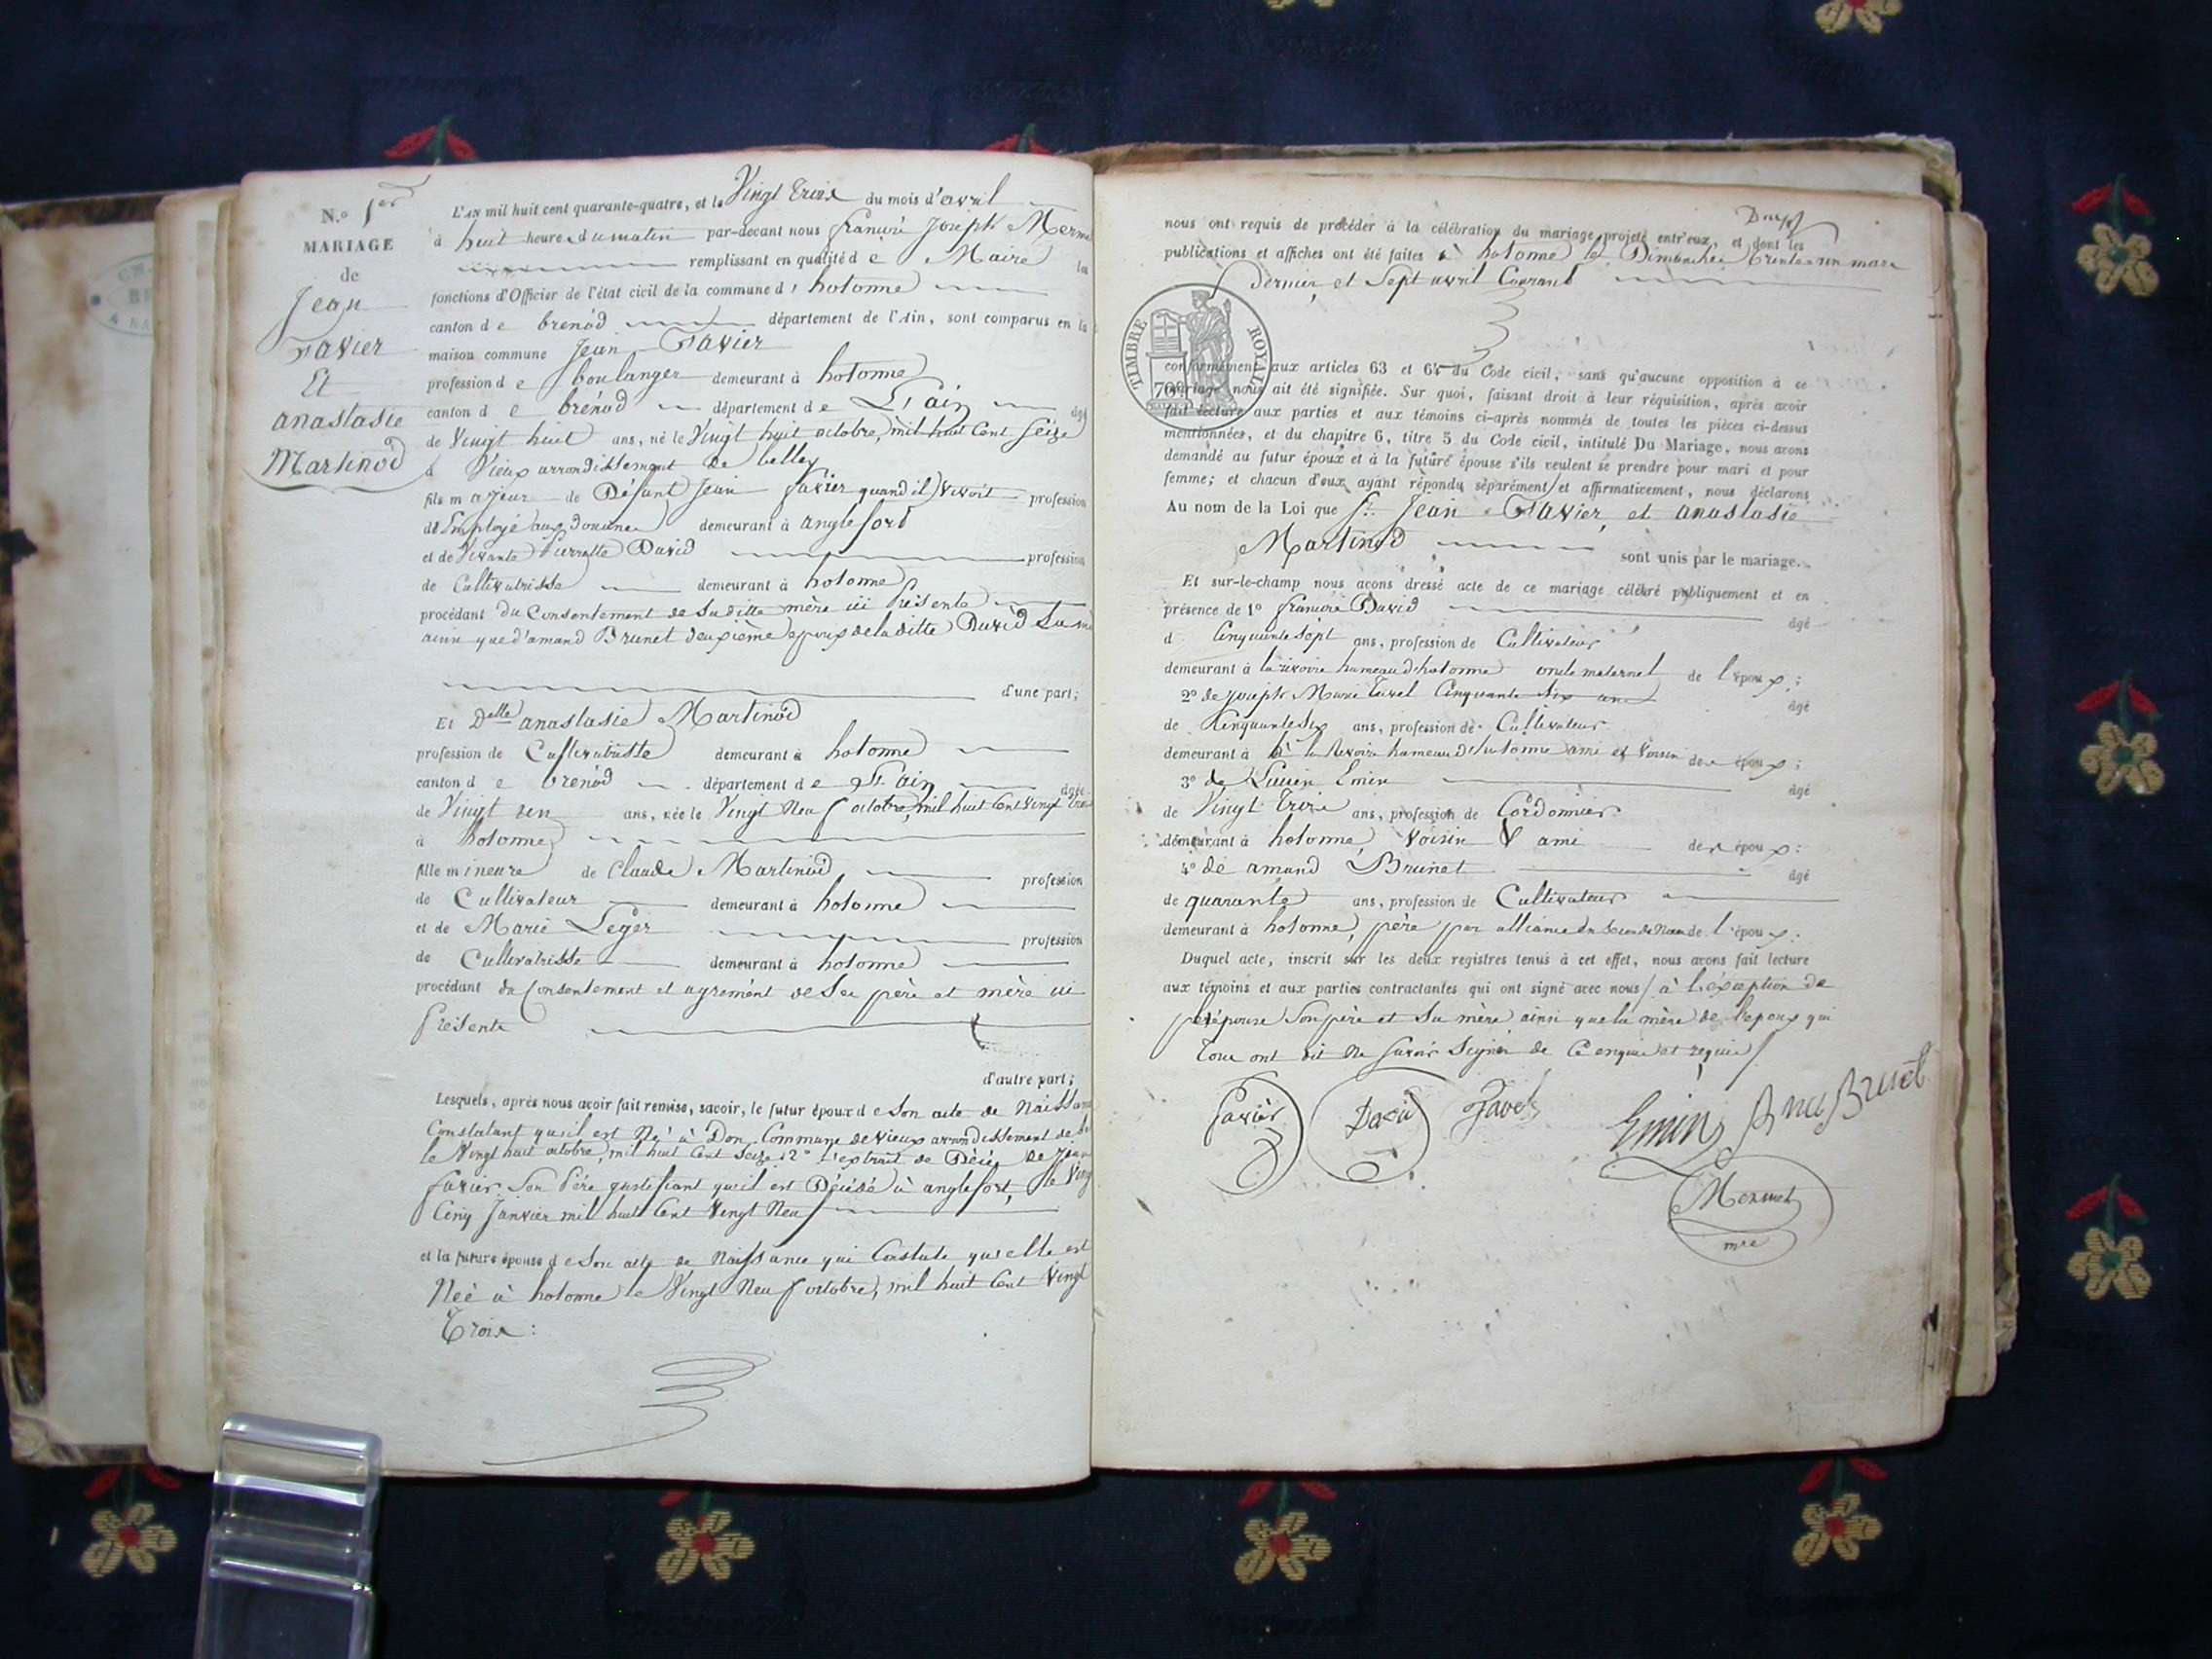 N.o 1er
MARIAGE
de
Jean
Favier
Et
anastasie
Martinod
L'AN mil huit cent quarante-quatre, et le Vingt trois du mois d'avril
à huit heure du matin par-devant nous francois Joseph Merme
remplissant en qualité de Maire les
fonctions d'Officier de l'état civil de la commune d' hotonne
canton de brenod département de l'Ain, sont comparus en la
maison commune Jean Favier
profession de boulanger demeurant à hotonne
canton de brénod département de L'ain âgé
de Vingt huit ans, né le Vingt huit octobre, mil huit Cent Seize
à Vieux arrondissement de belley
fils majeur de Défunt Jean favier quand il vivoit profession
de Employé aux douanes demeurant à anglefort
et de Vivante Pierrette David profession
de Cultivatrisse demeurant à hotonne
procédant du Consentement de Sa ditte mère ici Présente
ainsi que d'amand Brunet deuxième epoux de la ditte David Sa mè
d'une part;
Et Delle anastasie Martinod
profession de Cultivatrisse demeurant à hotonne
canton de brénod département de L'ain âgée
de Vingt un ans, née le Vingt Neuf octobre, mil huit Cent Vingt trois
à hotonne
fille mineure de Claude Martinod profession
de Cultivateur demeurant à hotonne
et de Marie Léger profession
de Cultivatrisse demeurant à hotonne
procédant du Consentement et agrément de Ses père et mère ici
Présents
d'autre part;
Lesquels, après nous avoir fait remise, savoir, le futur époux de Son acte de Naissance
Constatant qu'il est Né à Don Commune de Vieux arrondissement de
le Vingt huit octobre, mil huit Cent Seize 2° l'extrait de Décès de Jean
favier Son Père justifiant qu'il est Décédé à anglefort, le Vingt
Cinq Janvier mil huit Cent Vingt Neuf
et la future épouse de Son acte de Naissance qui Constate qu'elle est
Née à hotonne le Vingt Neuf octobre, mil huit Cent Vingt
Trois :
nous ont requis de procéder à la célébration du mariage projeté entr'eux, et dont les
publications et affiches ont été faites à hotonne le Dimanches trente un mars
Dernier et Sept avril Courant
TIMBRE ROYAL
70c
conformément aux articles 63 et 64 du Code civil, sans qu'aucune opposition à ce
mariage nous ait été signifiée. Sur quoi, faisant droit à leur réquisition, après avoir
fait lecture aux parties et aux témoins ci-après nommés de toutes les pièces ci-dessus
mentionnées, et du chapitre 6, titre 5 du Code civil, intitulé Du Mariage, nous avons
demandé au futur époux et à la future épouse s'ils veulent se prendre pour mari et pour
femme; et chacun d'eux ayant répondu séparément et affirmativement, nous déclarons
Au nom de la Loi que Sr. Jean Favier, et anastasie
Martinod sont unis par le mariage.
Et sur-le-champ nous avons dressé acte de ce mariage célébré publiquement et en
présence de 1° francois David âgé
d Cinquante Sept ans, profession de Cultivateur
demeurant à la rivoire hameau d'hotonne oncle maternel de l'époux;
2° de joseph Marie Cinquante Six ans âgé
de Cinquante Six ans, profession de Cultivateur
demeurant à à la Rivoire hameau d'hotonne ami et Voisin des époux;
3° de Lucien Emin âgé
de Vingt trois ans, profession de Cordonnier
demeurant à hotonne, Voisin & ami des époux:
4° de amand Brunet âgé
de quarante ans, profession de Cultivateur
demeurant à hotonne, père par alliance en Seconde Noce de l'époux.
Duquel acte, inscrit sur les deux registres tenus à cet effet, nous avons fait lecture
aux témoins et aux parties contractantes qui ont signé avec nous / à L'exception de
l'épouse Son père et Sa mère ainsi que la mère de l'epoux qui
Tous ont dit Ne Savoir Signer de Ce enquis et requis /
favier David Emin Brunet
Mermet
mre